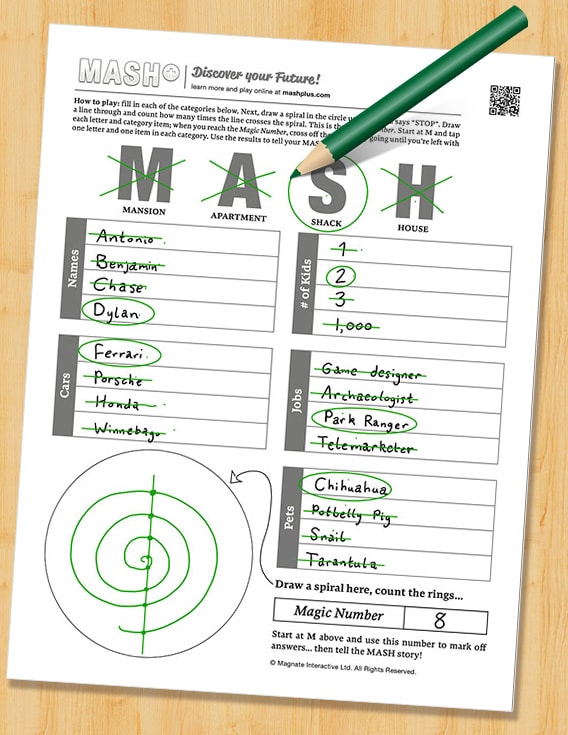 MASH
Discover your Future!
learn more and play online at mashplus.com
How to play: fill in each of the categories below. Next, draw a spiral in the circle says "STOP". Draw
a line through and count how many times the line crosses the spiral. This is the Start at M and tap
each letter and category item; when you reach the Magic Number, cross off the going until you're left with
one letter and one item in each category. Use the results to tell your
M A S H
MANSION APARTMENT SHACK HOUSE
Names
Antonio
Benjamin
Chase
Dylan
# of Kids
1
2
3
1,000
Cars
Ferrari
Porsche
Honda
Winnebago
Jobs
Game designer
Archaeologist
Park Ranger
Telemarketer
Pets
Chihuahua
Potbelly Pig
Snail
Tarantula
Draw a spiral here, count the rings...
Magic Number 8
Start at M above and use this number to mark off
answers... then tell the MASH story!
© Magnate Interactive Ltd. All Rights Reserved.